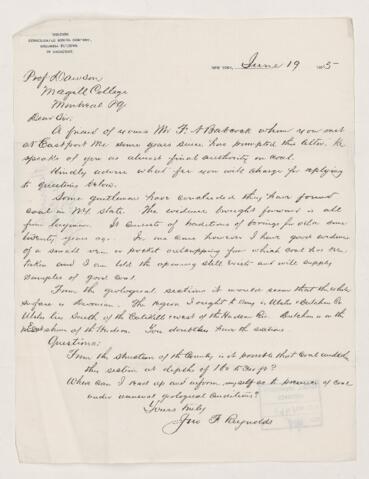 CONSOLIDATED MINING COMPANY,
NEW YORK, June 19
Prof. Dawson
Magill College
Montreal PQ
Dear Sir:
A friend of yours Mr. F. A. Babcock whom you met
at Eastport Me some years since has prompted this letter. He
speaks of you as almost final authority on coal.
Kindly advise what fee you will charge for replying
to questions below.
Some gentlemen have concluded they have found
coal in N.Y. state. The evidence brought forward is all
from laymen. It consists of traditions of borings for oil done
twenty years ago. In one case however I have good evidence
of a small vein or pocket outcropping from which coal has been
taken and I am told the opening still exists and will supply
samples of good coal.
From the geological sections it would seem that the whole
surface is Devonian. The region I ought to say is Ulster & Dutchess Co
Ulster lies South of the Catskills & west of the Hudson Riv. Dutchess is on the
East shore of the Hudson. You doubtless know the section.
Questions:
From the situation of the County is it possible that coal underlies
this section at depths of
Where can I read up and inform myself as to presence of coal
under unusual geological conditions?
Yours truly
Jno F. Reynolds